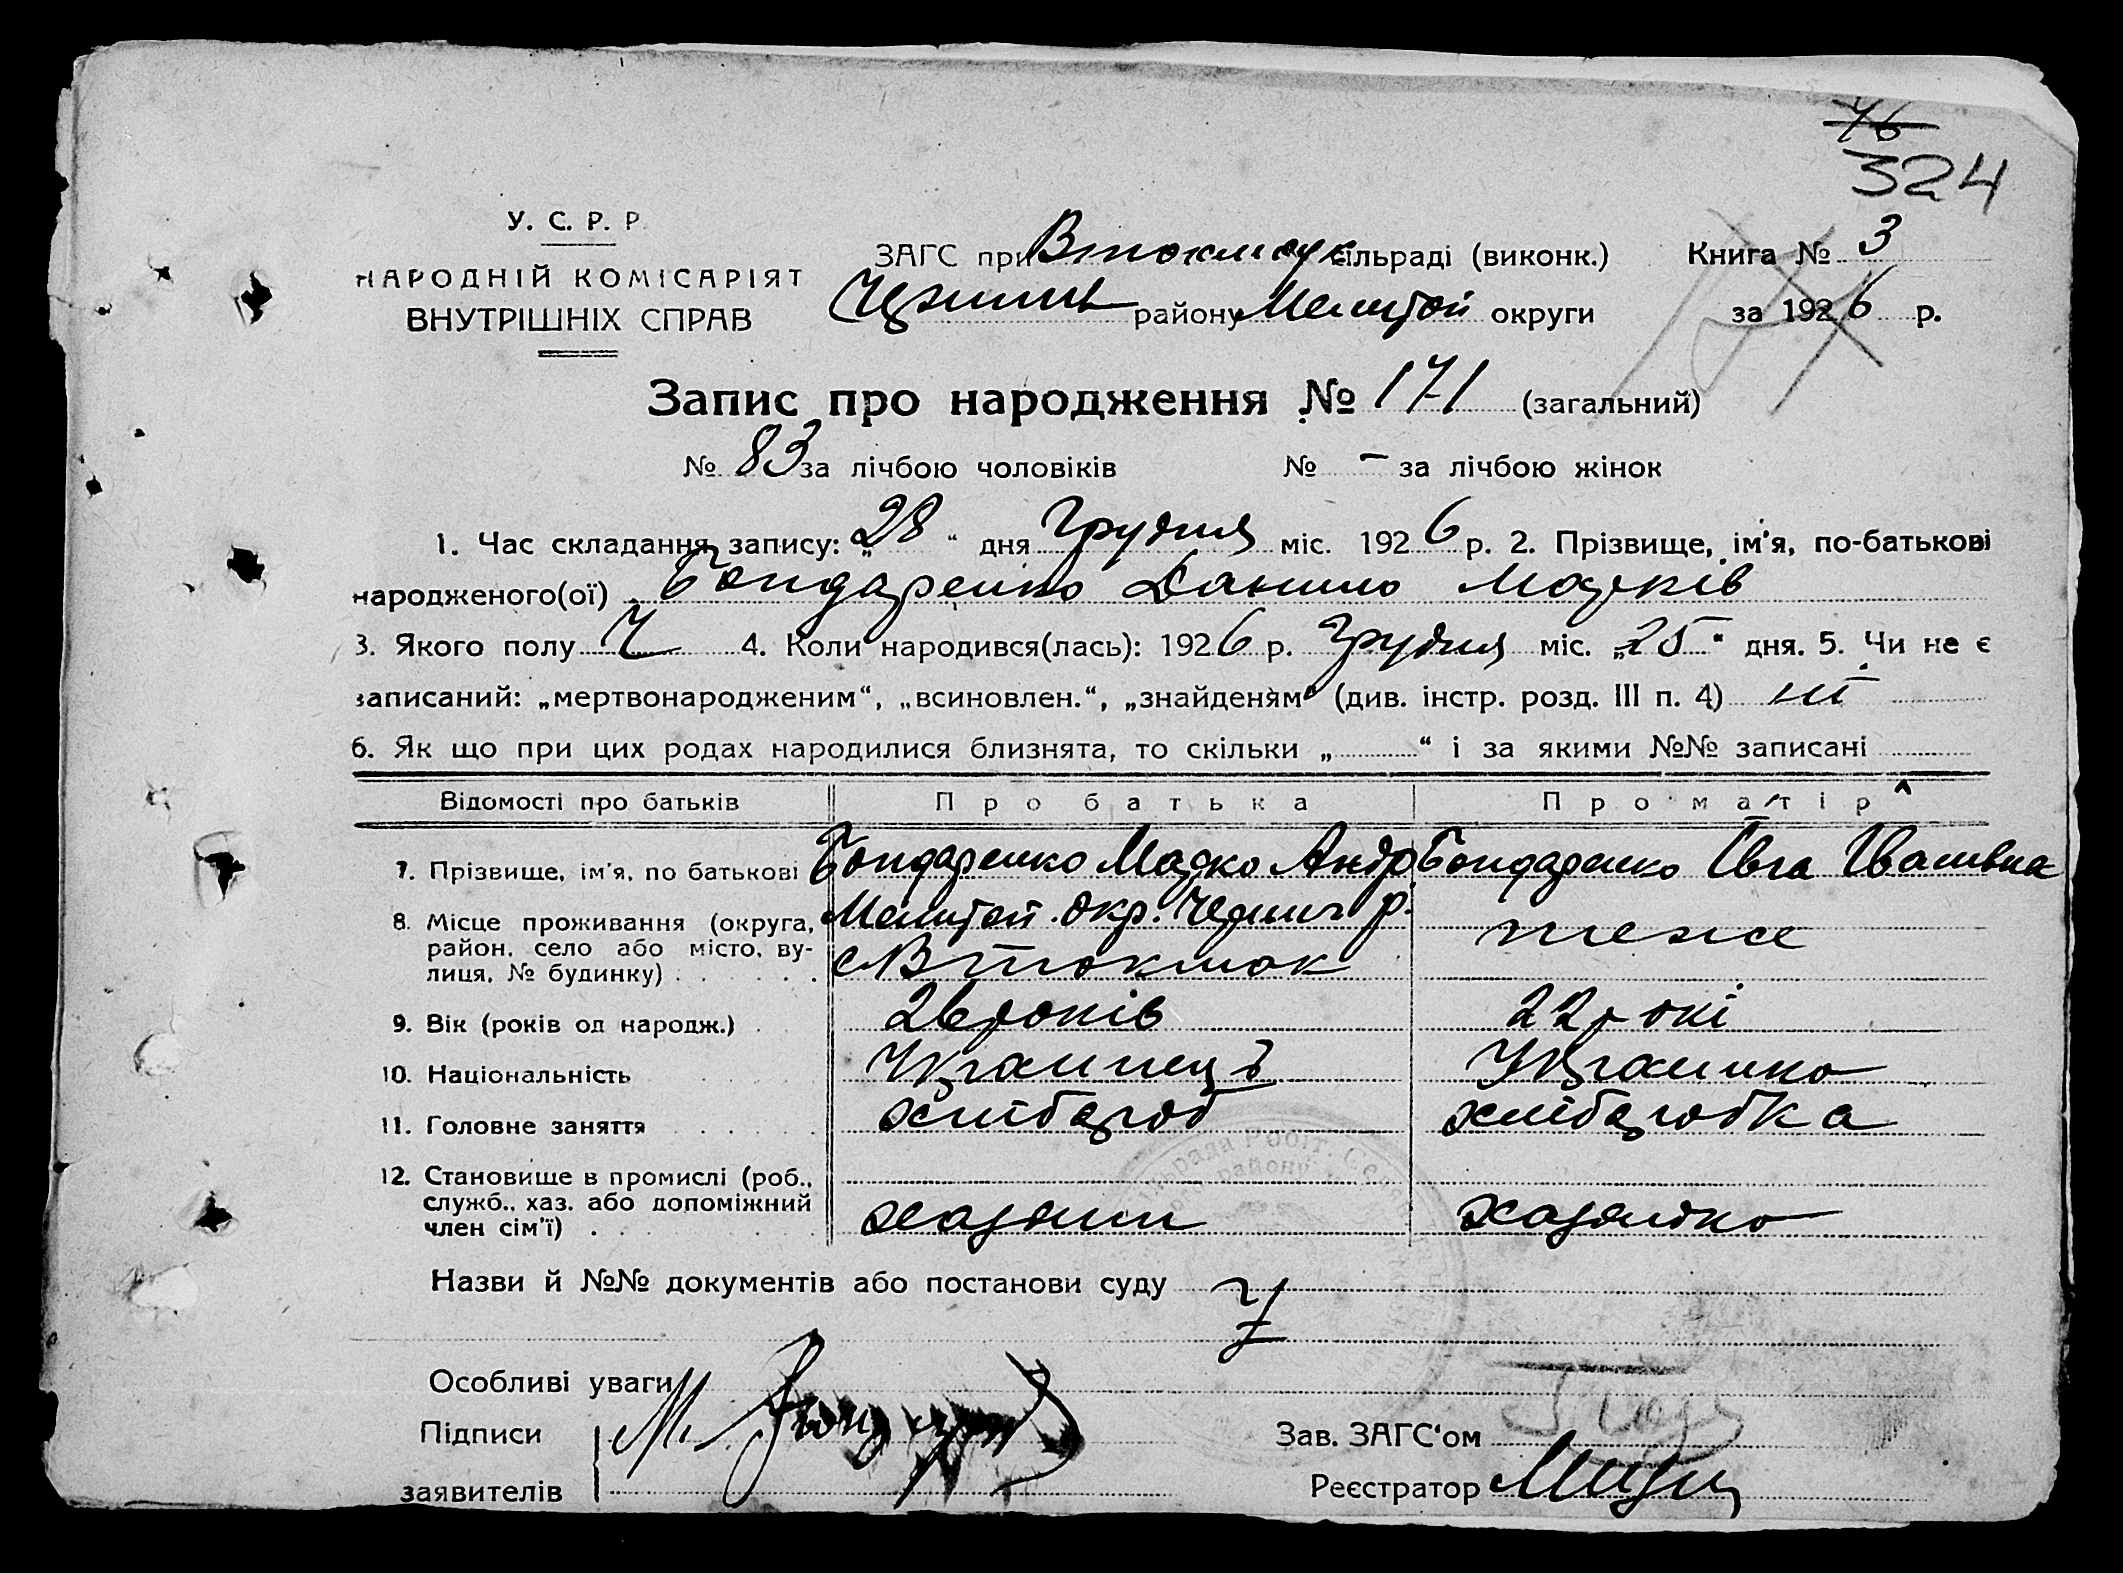 76
324
У. С. Р. Р.
НАРОДНІЙ КОМІСАРІЯТ
ВНУТРІШНІХ СПРАВ
ЗАГС при Втокмак сільраді (виконк.) Книга № 3
району Мелитой округи за 1926 р.
Запис про народження № 171 (загальний)
№ 83 за лічбою чоловіків № – за лічбою жінок
1. Час складання запису: „28“ дня Грудня міс. 1926 р. 2. Прізвище, ім'я, по-батькові
народженого(ої) Бондаренко Данило Марків
3. Якого полу Ч 4. Коли народився(лась): 1926 р. Грудня міс. „25“ дня. 5. Чи не є
записаний: „мертвонародженим“, „всиновлен.“, „знайденям“ (див. інстр. розд. III п. 4) ні
6. Як що при цих родах народилися близнята, то скільки „ “ і за якими №№ записані
Відомості про батьків Про батька Про матір
7. Прізвище, ім'я, по батькові Бондаренко Марко Андр Бондаренко Івга Іванівна
8. Місце проживання (округа, Мелитой. окр. р.
район, село або місто, ву- сВтокмак теже
лиця, № будинку)
9. Вік (років од народж.) 26 років 22 рокі
10. Національність Украинець Украинка
11. Головне заняття хлібароб хлібаробка
12. Становище в промислі (роб.,
служб., хаз. або допоміжний хазяин хазяйка
член сім'ї)
Назви й №№ документів або постанови суду
Особливі уваги
Підписи М.
заявителів
Зав. ЗАГС'ом
Реєстратор